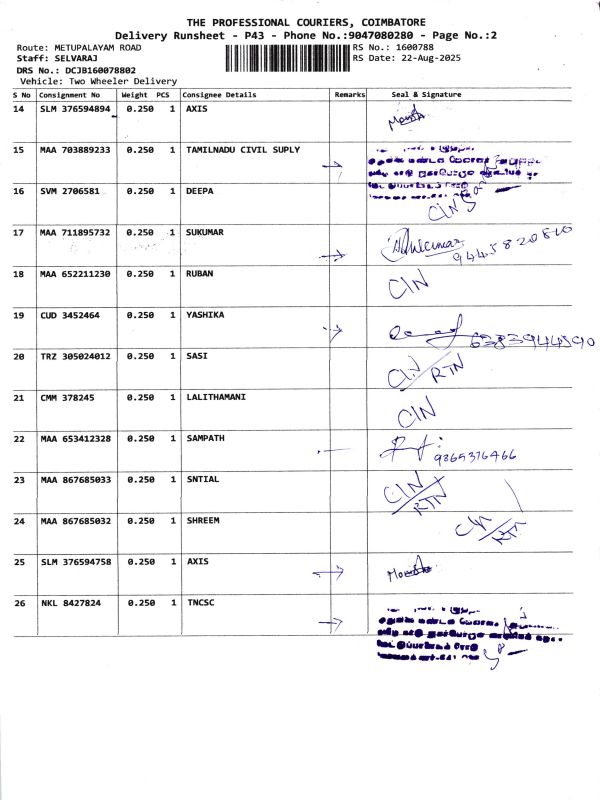 THE PROFESSIONAL COURIERS, COIMBATORE
Delivery Runsheet - P43 - Phone No.:9047080280 - Page No.:2
Route: METUPALAYAM ROAD RS No.: 1600788
Staff: SELVARAJ RS Date: 22-Aug-2025
DRS No.: DCJB160078802
Vehicle: Two Wheeler Delivery
S No Consignment No Weight PCS Consignee Details Remarks Seal & Signature
14 SLM 376594894 0.250 1 AXIS
15 MAA 703889233 0.250 1 TAMILNADU CIVIL SUPLY
16 SVM 2706581 0.250 1 DEEPA CIN
17 MAA 711895732 0.250 1 SUKUMAR 9445820810
18 MAA 652211230 0.250 1 RUBAN CIN
19 CUD 3452464 0.250 1 YASHIKA 6383944590
20 TRZ 305024012 0.250 1 SASI CIN/RTN
21 CMM 378245 0.250 1 LALITHAMANI CIN
22 MAA 653412328 0.250 1 SAMPATH 9865376466
23 MAA 867685033 0.250 1 SNTIAL CIN/RTN
24 MAA 867685032 0.250 1 SHREEM CIN/RTN
25 SLM 376594758 0.250 1 AXIS
26 NKL 8427824 0.250 1 TNCSC